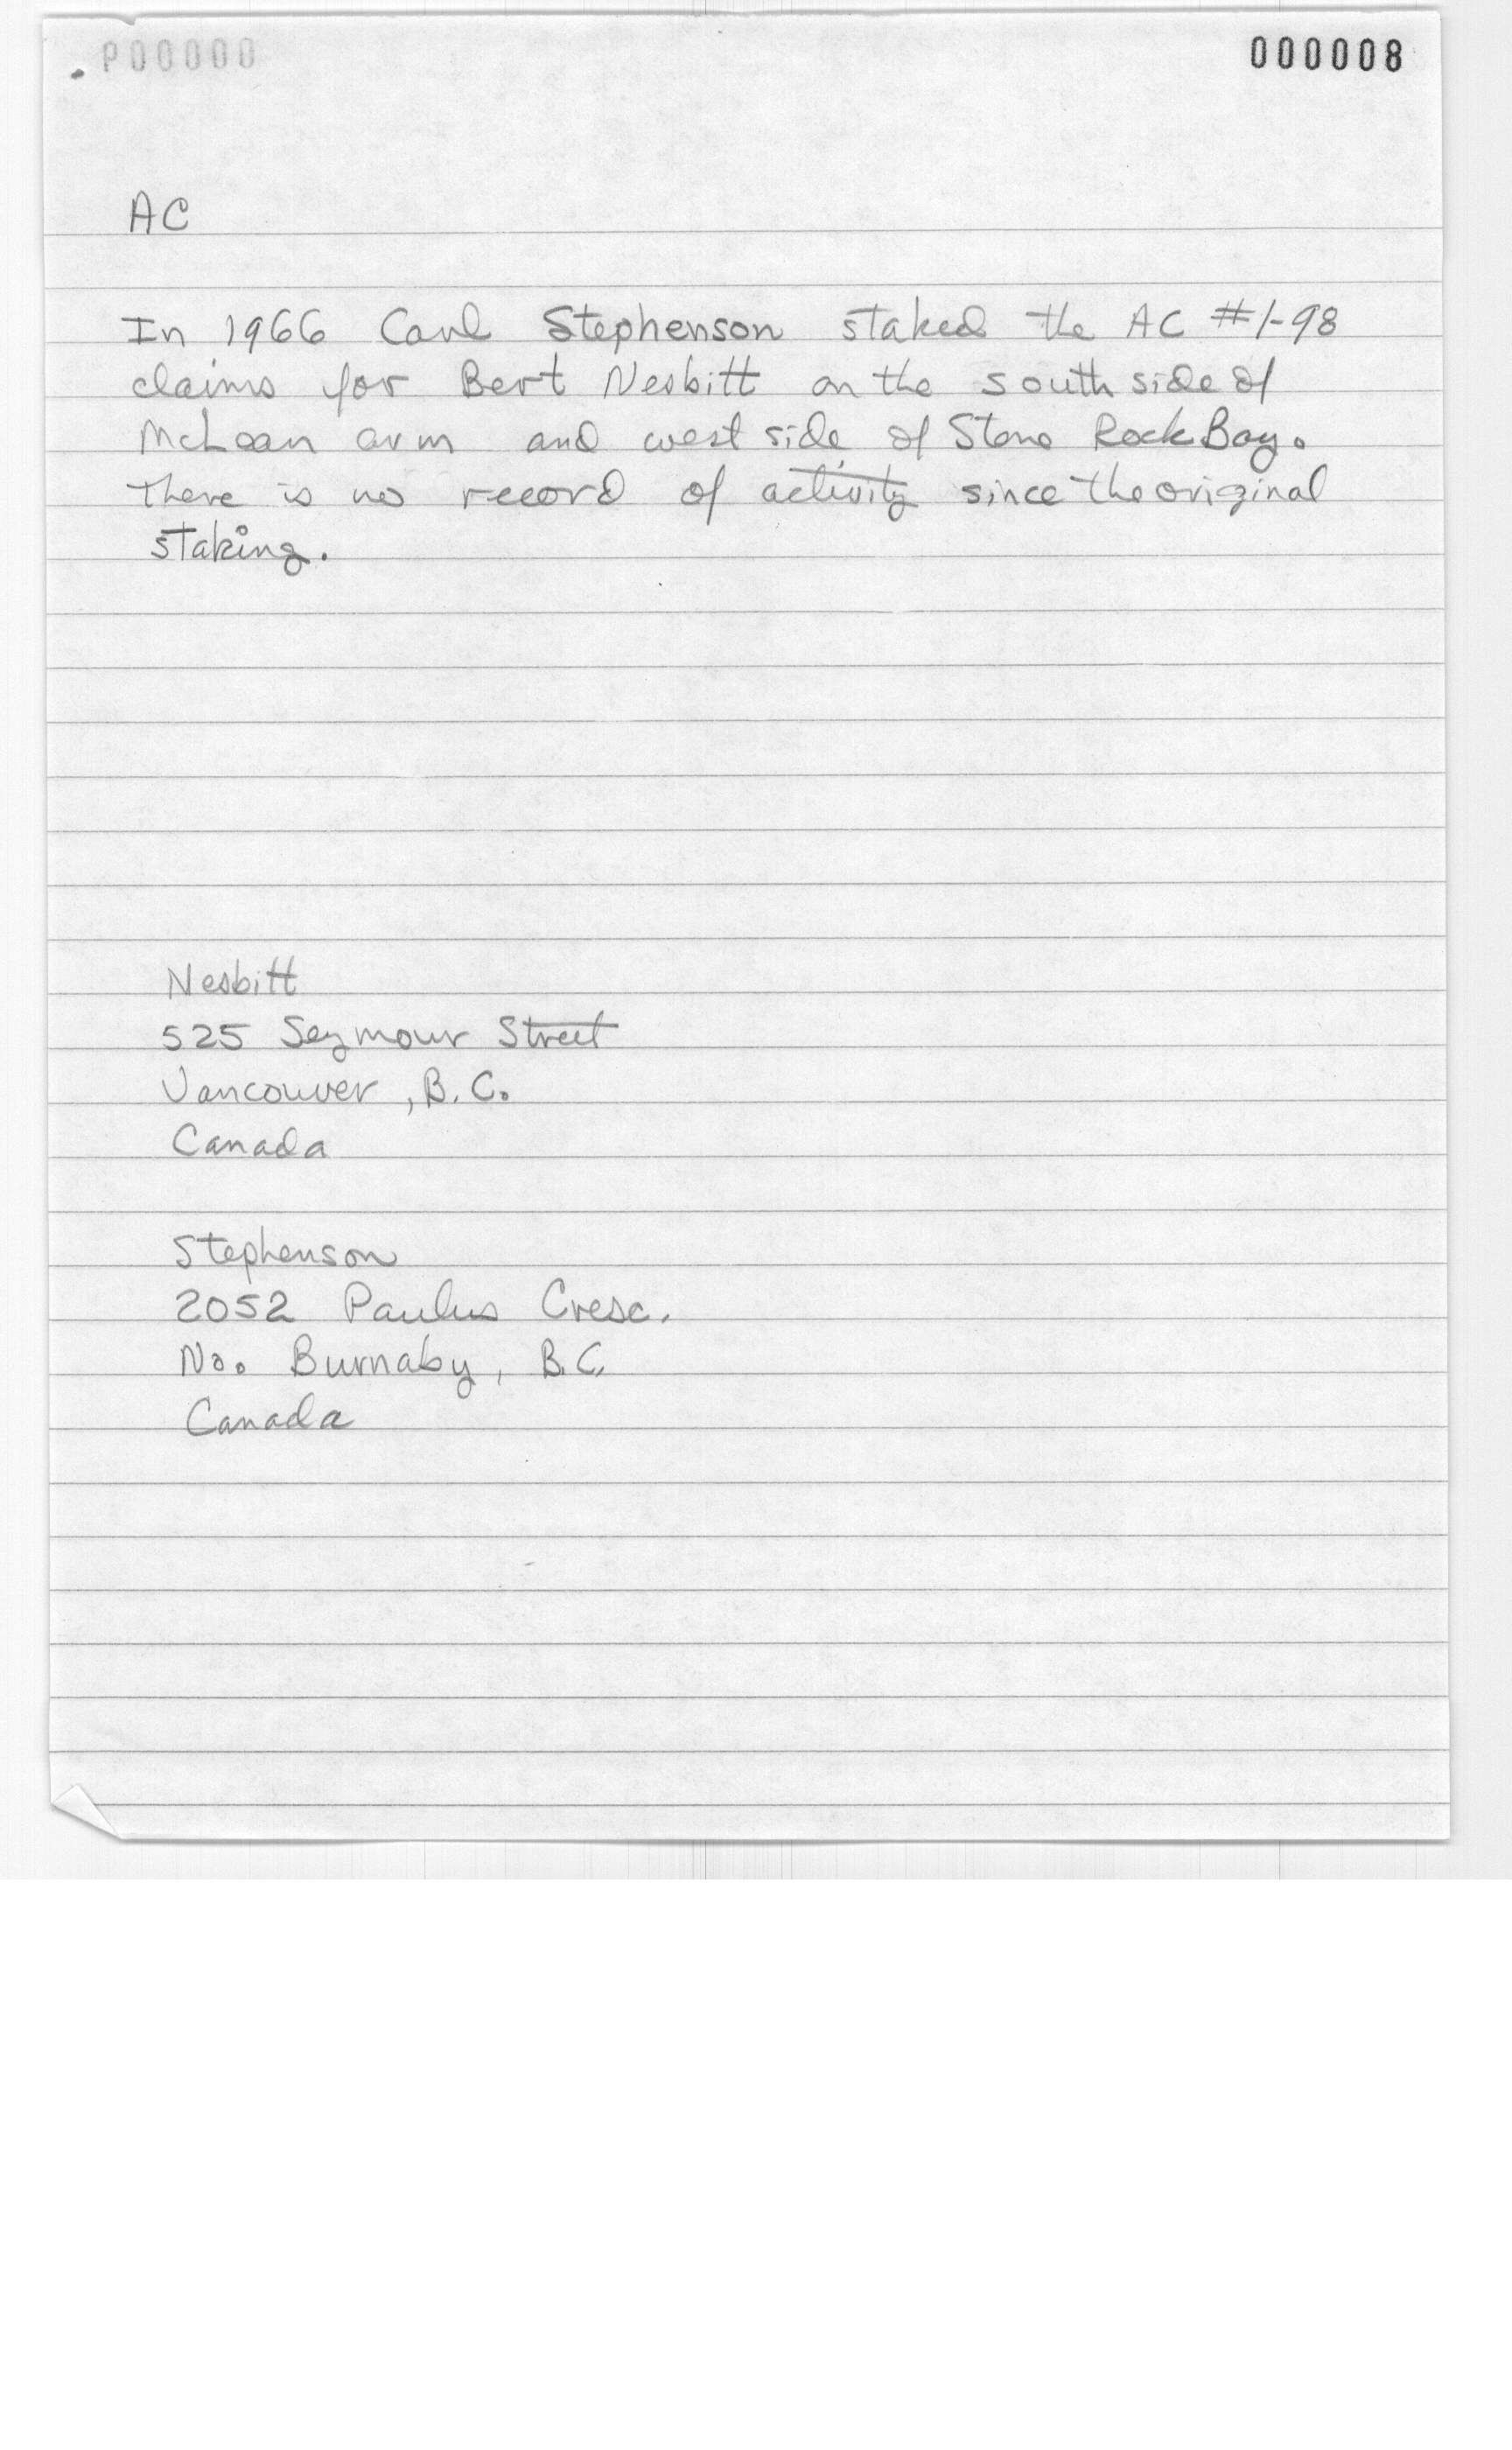 P00000
000008
AC
In 1966 Carl Stephenson staked the AC #1-98
claims for Bert Nesbitt on the south side of
McLean arm and west side of Stone Rock Bay.
There is no record of activity since the original
staking.
Nesbitt
525 Seymour Street
Vancouver, B.C.
Canada
Stephenson
2052 Paulus Cresc.
No. Burnaby, B.C.
Canada